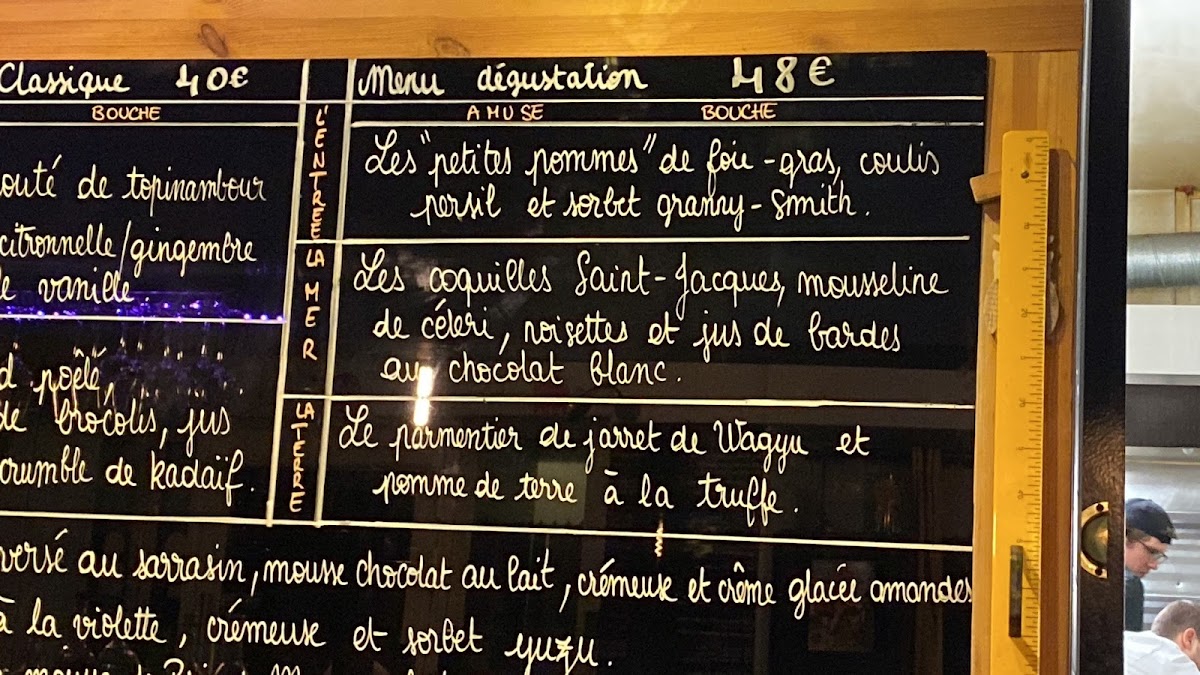 Classique 40€
BOUCHE
outé de topinambour
citronnelle/gingembre
le vanille
d poêlé,
de brocolis, jus
crumble de kadaïf.
Menu dégustation 48€
AMUSE BOUCHE
L'ENTREE
Les "petites pommes" de foie-gras, coulis
persil et sorbet granny-Smith.
LA MER
Les coquilles Saint-Jacques, mousseline
de céleri, noisettes et jus de bardes
au chocolat blanc.
LA TERRE
Le parmentier de jarret de Wagyu et
pomme de terre à la truffe.
versé au sarrasin, mousse chocolat au lait, crémeuse et crême glacée amandes
à la violette, crémeuse et sorbet yuzu.